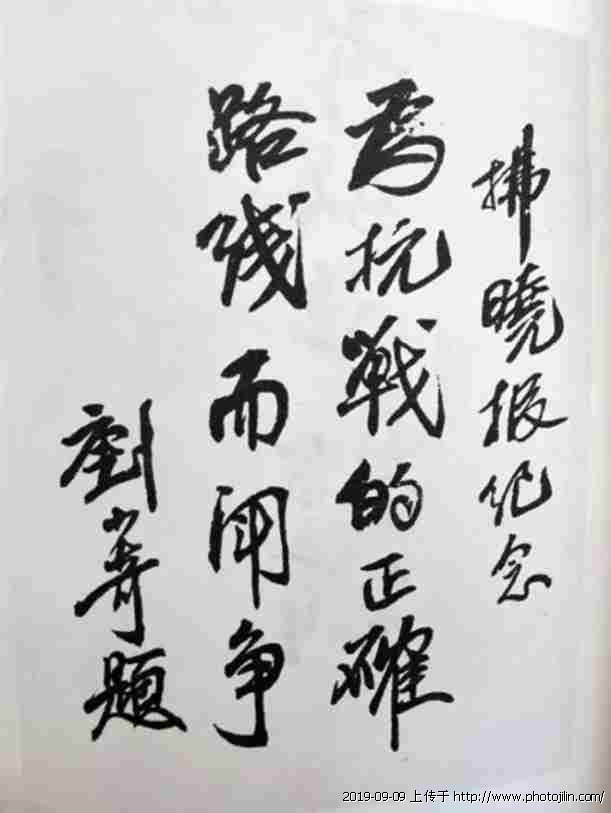 拂曉报纪念
为抗戰的正確
路线而鬥争
劉少奇題
2019-09-09 上传于 http://www.photojilin.com/